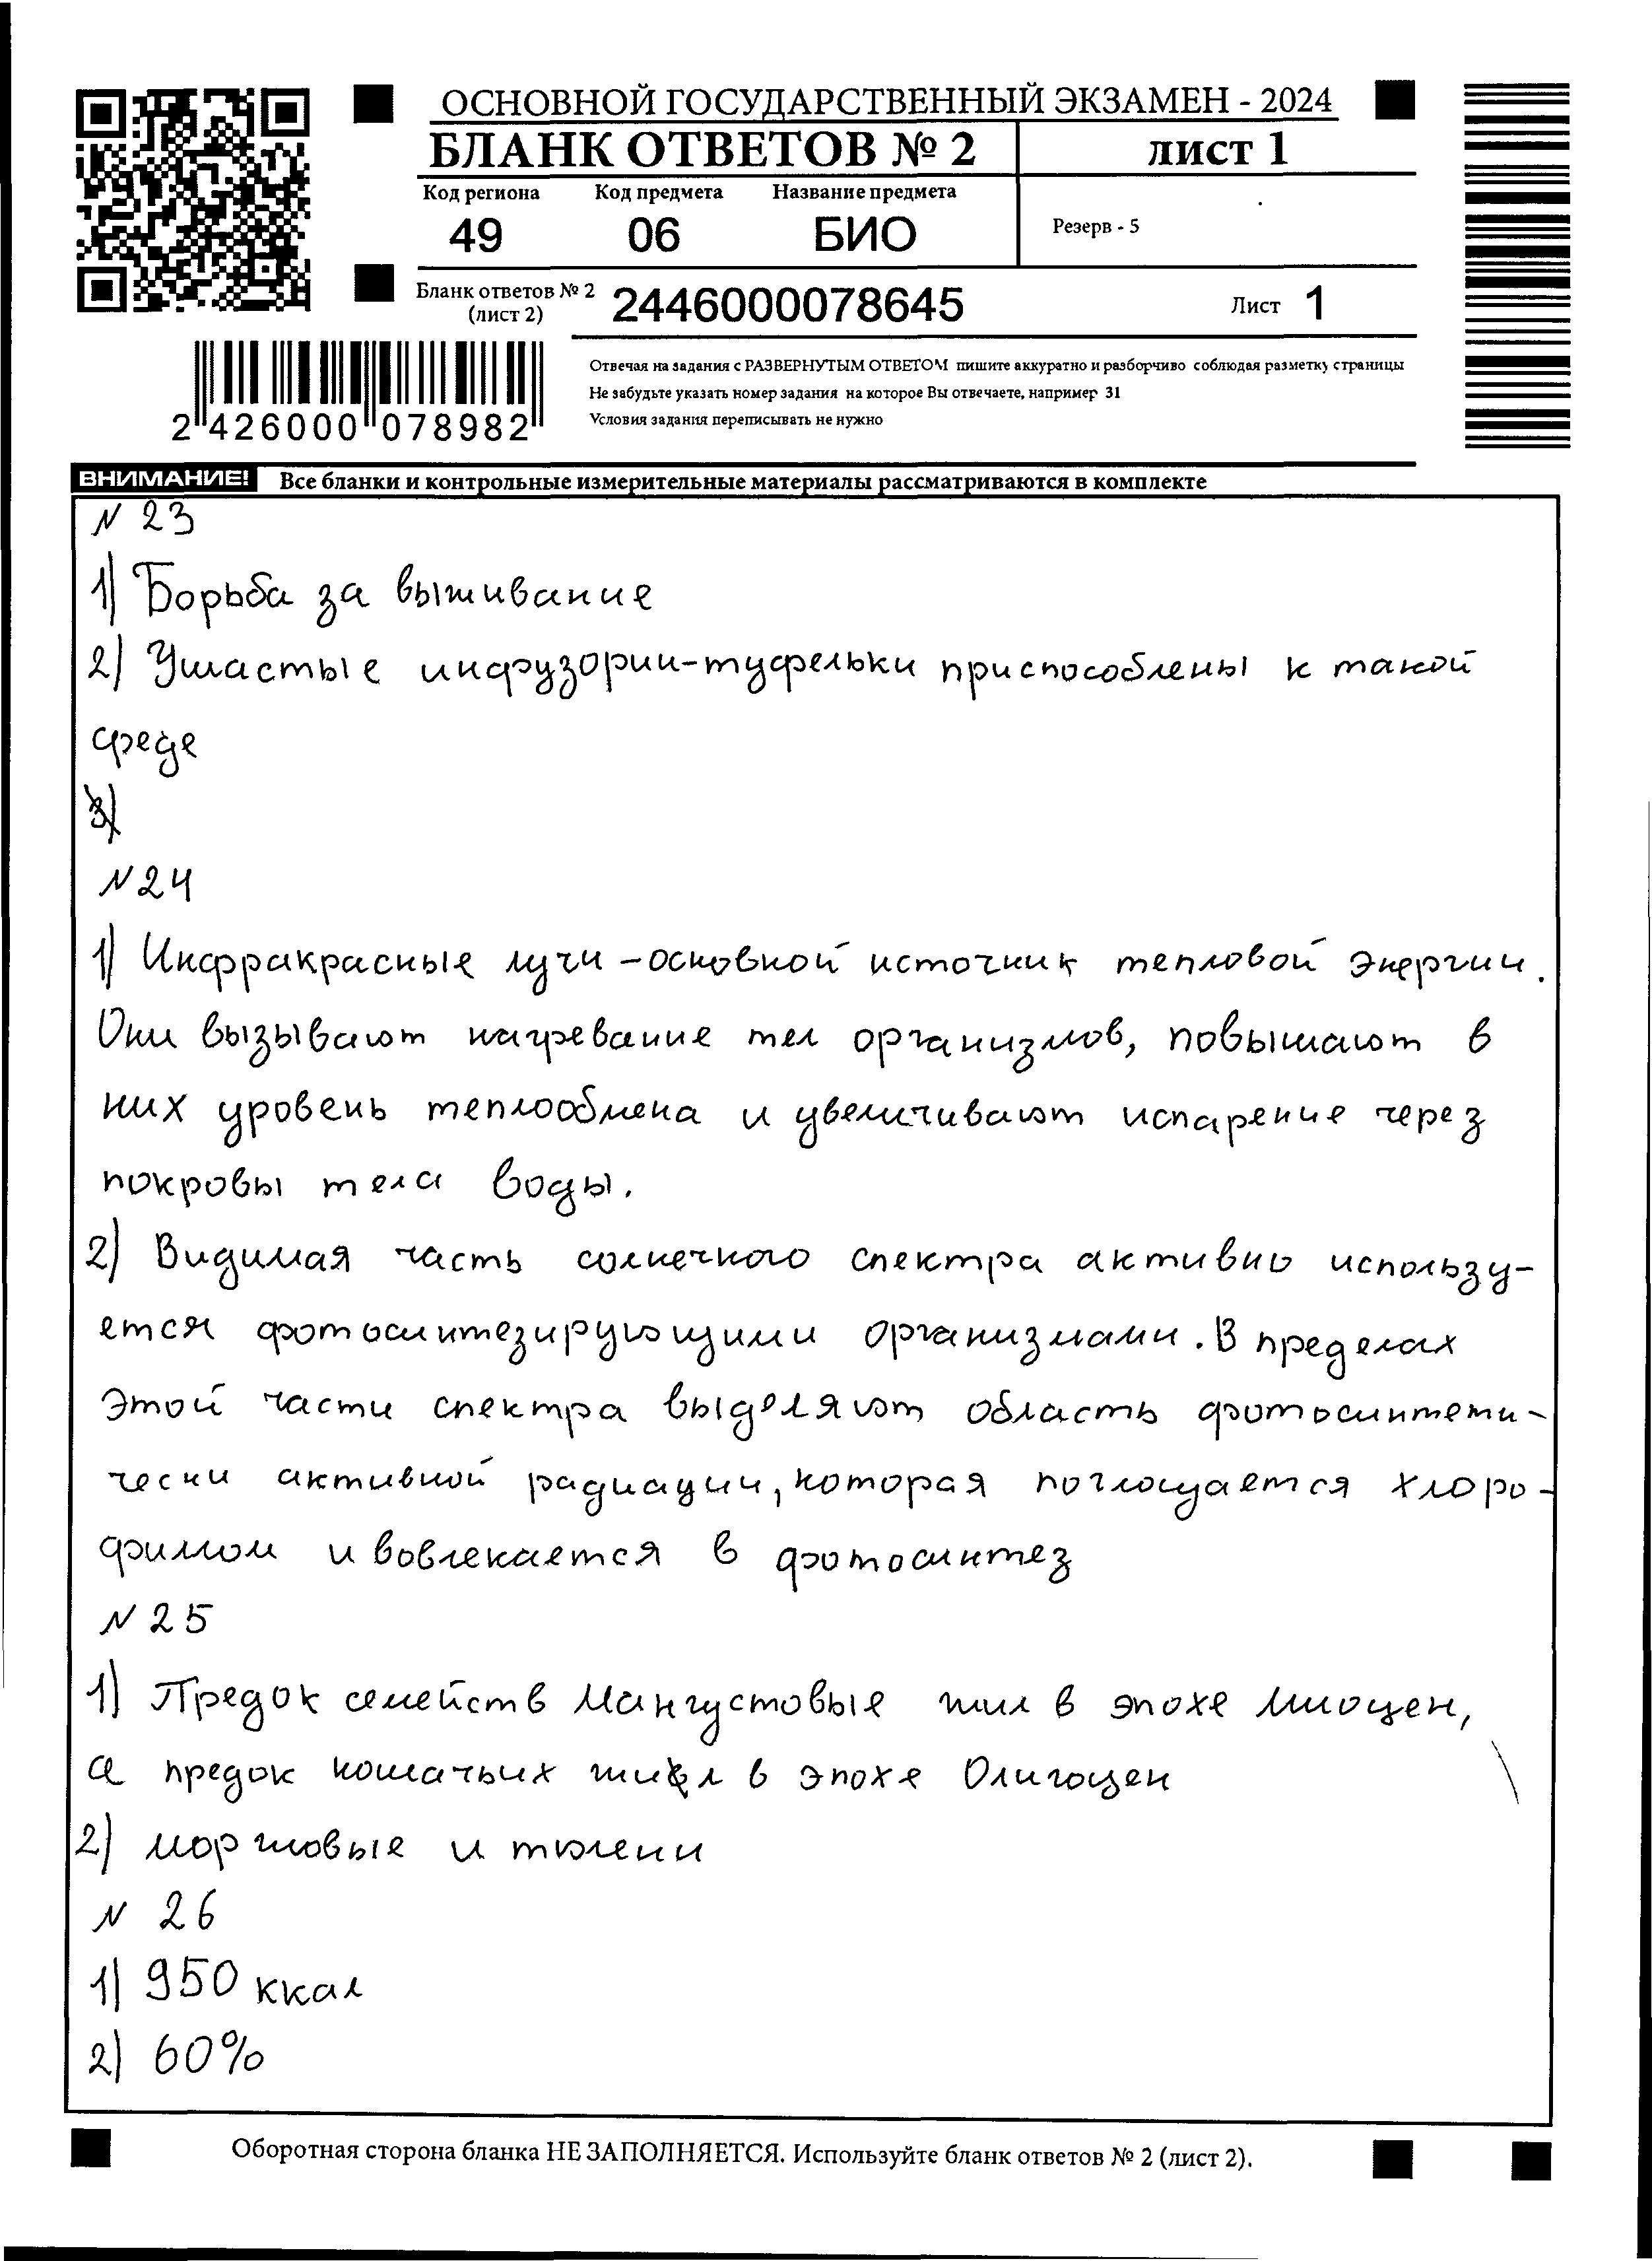 ОСНОВНОЙ ГОСУДАРСТВЕННЫЙ ЭКЗАМЕН - 2024
БЛАНК ОТВЕТОВ № 2
ЛИСТ 1
Код региона Код предмета Название предмета
49 06 БИО
Резерв - 5
Бланк ответов № 2
(лист 2)
2446000078645
Лист 1
2 426000 078982
Отвечая на задания с РАЗВЕРНУТЫМ ОТВЕТОМ пишите аккуратно и разборчиво соблюдая разметку страницы
Не забудьте указать номер задания на которое Вы отвечаете, например 31
Условия задания переписывать не нужно
ВНИМАНИЕ! Все бланки и контрольные измерительные материалы рассматриваются в комплекте
N 23
1) Борьба за выживание
2) Ушастые инфузории-туфельки приспособлены к такой
среде
3)
N24
1) Инфракрасные лучи - основной источник тепловой энергии.
Они вызывают нагревание тел организмов, повышают в
них уровень теплообмена и увеличивают испарение через
покровы тела воды.
2) Видимая часть солнечного спектра активно использу-
ется фотосинтезирующими организмами. В пределах
этой части спектра выделяют область фотосинтети-
чески активной радиации, которая поглощается хлоро-
филлом и вовлекается в фотосинтез
N 25
1) Предок семейств Мангустовые жил в эпохе миоцен,
а предок кошачьих жил в эпохе Олигоцен
2) моржовые и тюлени
N 26
1) 950 ккал
2) 60%
Оборотная сторона бланка НЕ ЗАПОЛНЯЕТСЯ. Используйте бланк ответов № 2 (лист 2).